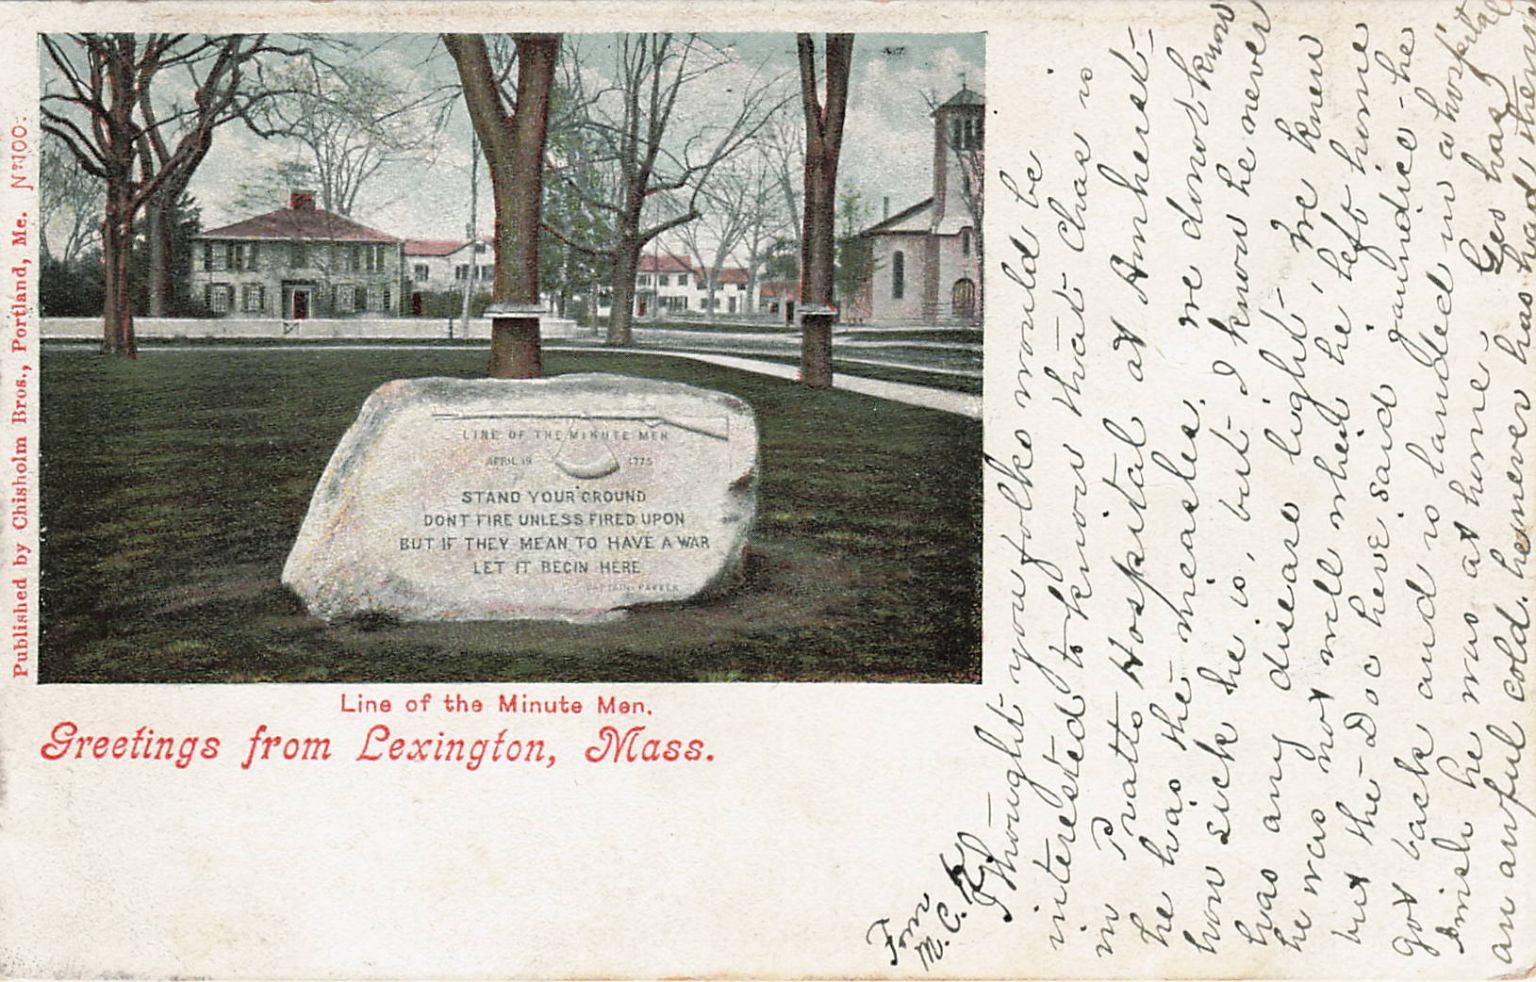 Published by Chisholm Bros., Portland, Me. No 100.
LINE OF THE MINUTE MEN
APRIL 19 1775
STAND YOUR GROUND
DONT FIRE UNLESS FIRED UPON
BUT IF THEY MEAN TO HAVE A WAR
LET IT BEGIN HERE
CAPTAIN PARKER
Line of the Minute Men.
Greetings from Lexington, Mass.
From
M. C.
Thought you folks would be
interested to know that Chas is
in Pratts Hospital at Amherst–
he has the measles. we do not know
how sick he is, but I know he never
has any disease light– We knew
he was not well when he left home
but the Doc here said jaundice – he
got back and is landed in a hospital
I wish he was at home. Geo has
an awful cold. he never has had them